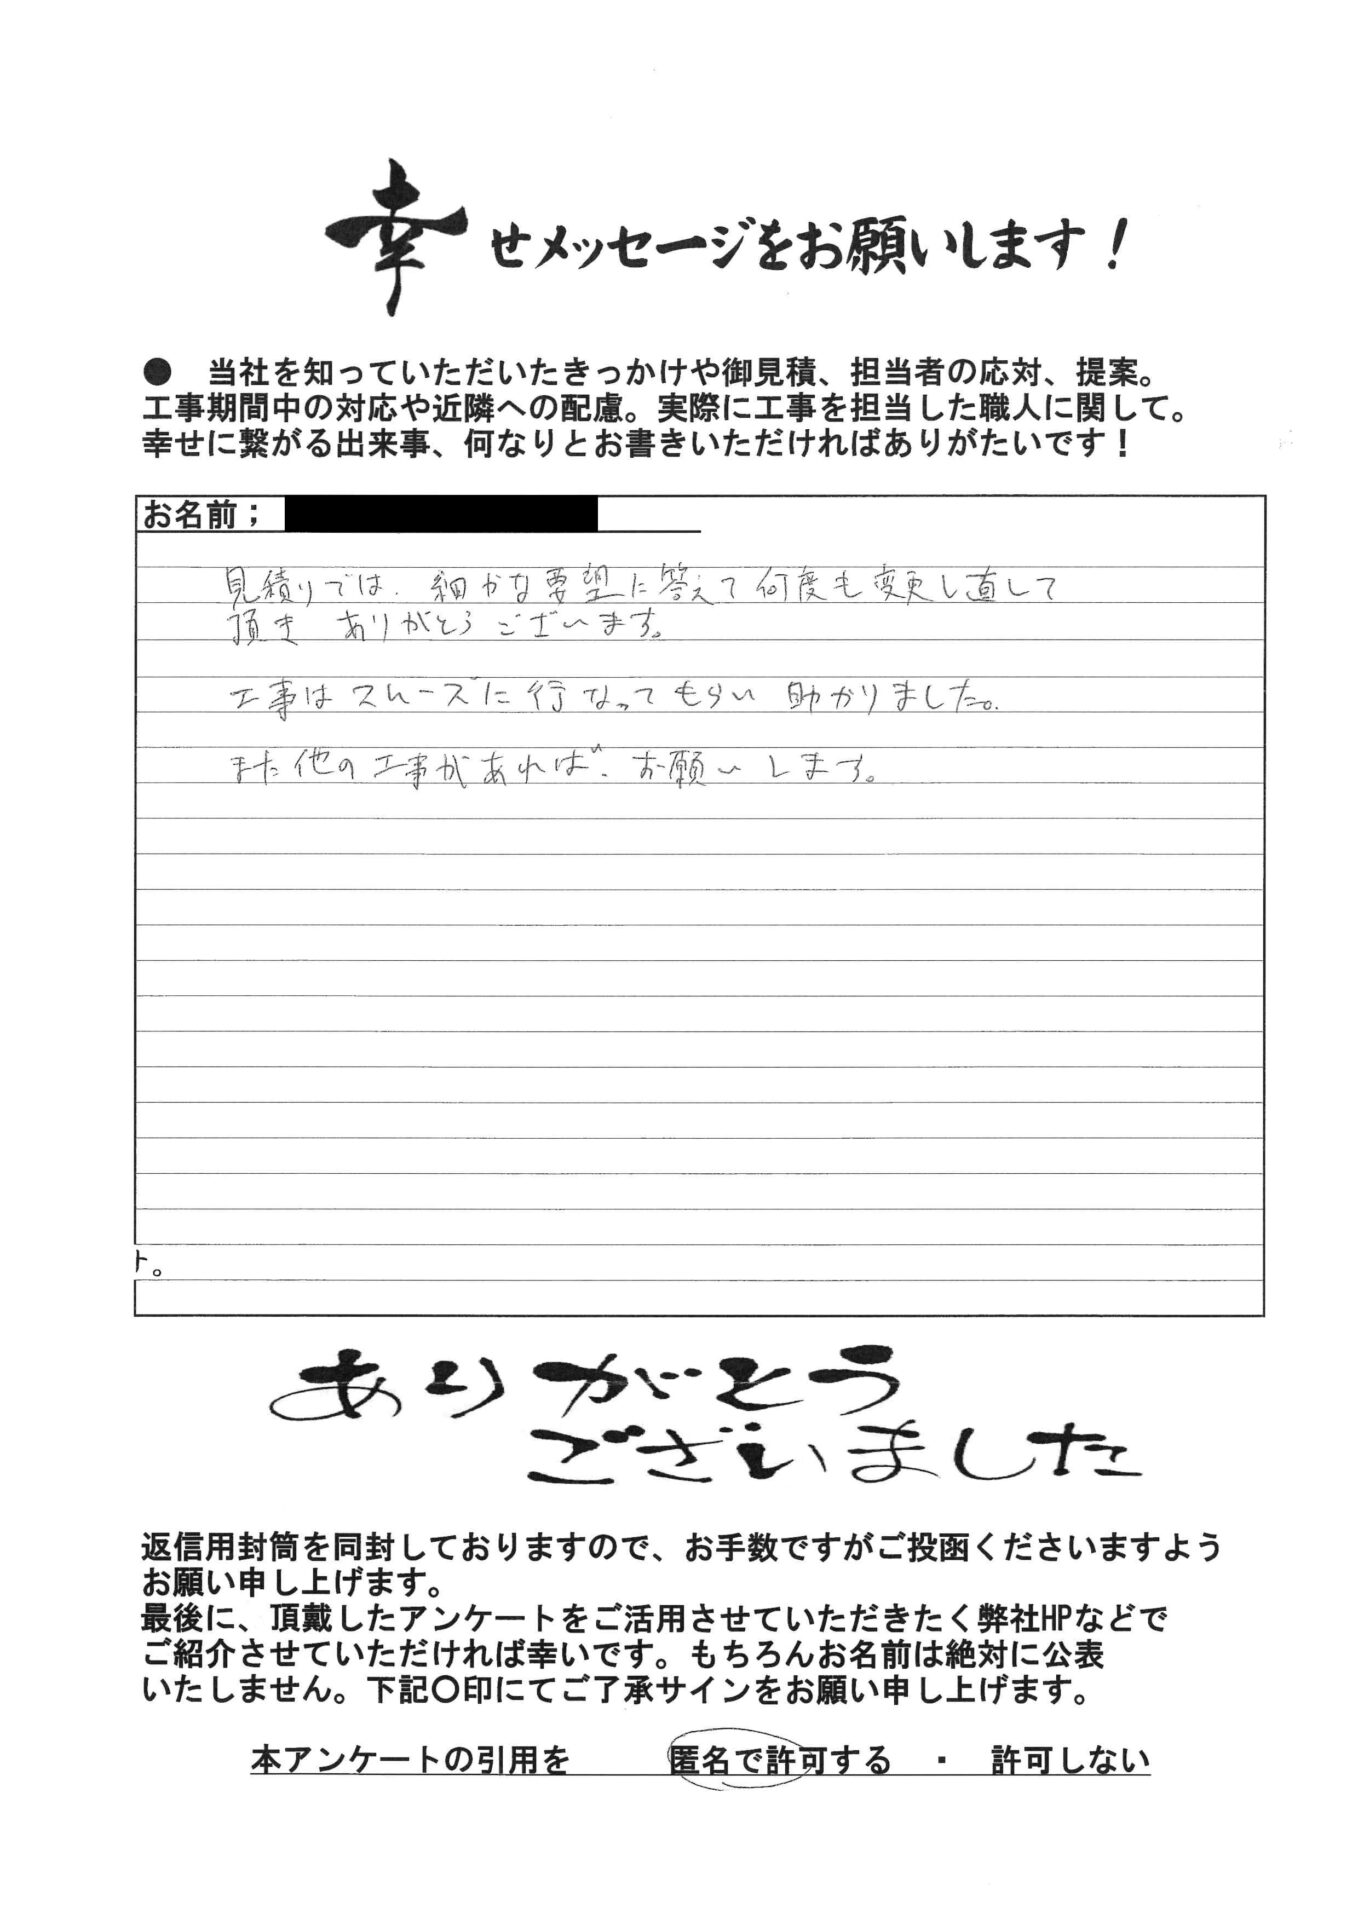 幸せメッセージをお願いします！
●　当社を知っていただいたきっかけや御見積、担当者の応対、提案。
工事期間中の対応や近隣への配慮。実際に工事を担当した職人に関して。
幸せに繋がる出来事、何なりとお書きいただければありがたいです！
お名前；
見積りでは、細かな要望に答えて何度も変更し直して
頂き ありがとうございます。
工事はスムーズに行なってもらい 助かりました。
また他の工事があれば、お願いします。
ト。
ありがとう
ございました
返信用封筒を同封しておりますので、お手数ですがご投函くださいますよう
お願い申し上げます。
最後に、頂戴したアンケートをご活用させていただきたく弊社HPなどで
ご紹介させていただければ幸いです。もちろんお名前は絶対に公表
いたしません。下記〇印にてご了承サインをお願い申し上げます。
本アンケートの引用を　　　匿名で許可する　・　許可しない